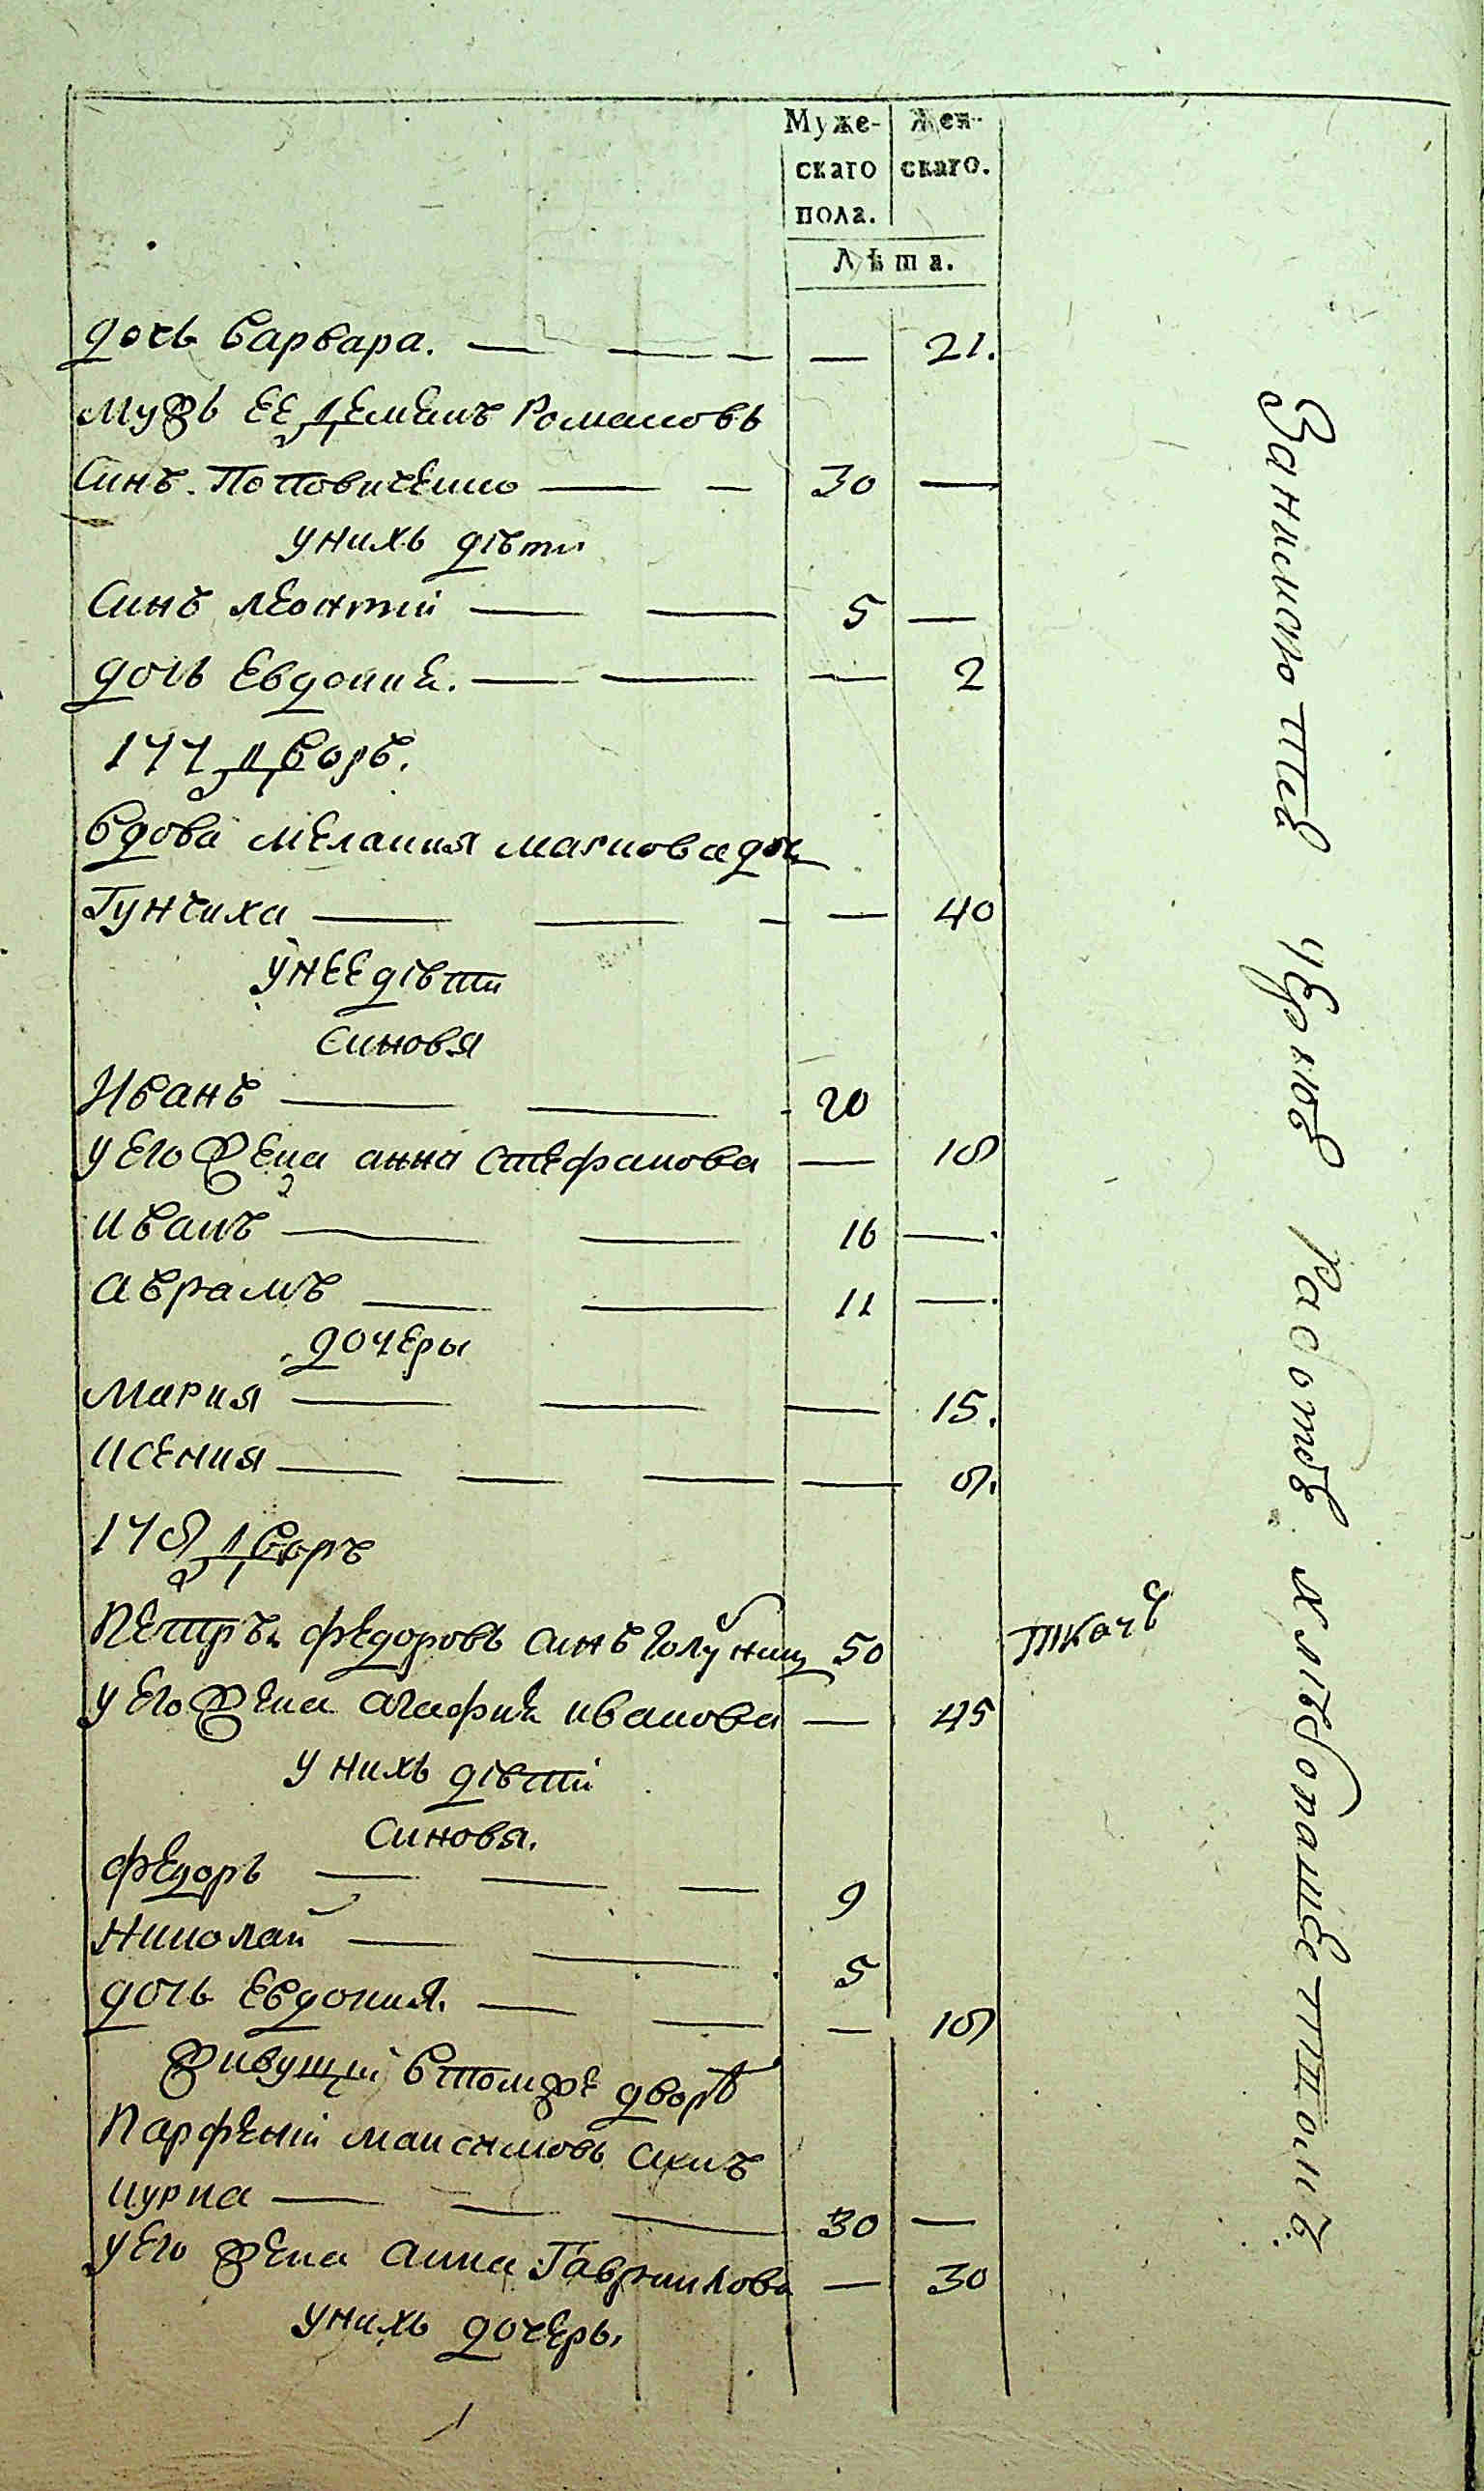 Муже-скаго пола. Жен-скаго.
Лѣта.
дочь Варвара. — 21.
мужъ ее Демянъ Романовъ
Синъ Поповиченко — 30 —
у нихъ дѣти
Синъ Леонтий — 5 —
дочь Евдокия. — 2
177 Дворъ.
Вдова Мелания Маркова дочь
Гунчиха — 40
у нее дѣти
Синовя
Иванъ — 20
у его жена Анна Стефанова — 18
Иванъ — 16 —
Аврамъ — 11 —
дочеры
Мария — 15.
Ксения — 8.
178 Дворъ
Петръ Федоровъ синъ 50 ткачъ
у его жена Агафия Иванова — 45
у нихъ дѣти
Синовя.
Федоръ — 9
Николай — 5
дочь Евдокия. — 18
живущий в томже дворѣ
Парфений Максимовъ синъ
Курка — 30 —
у его жена Анна Гавриилова — 30
у нихъ дочерь.
черной Работе хлебопашетством